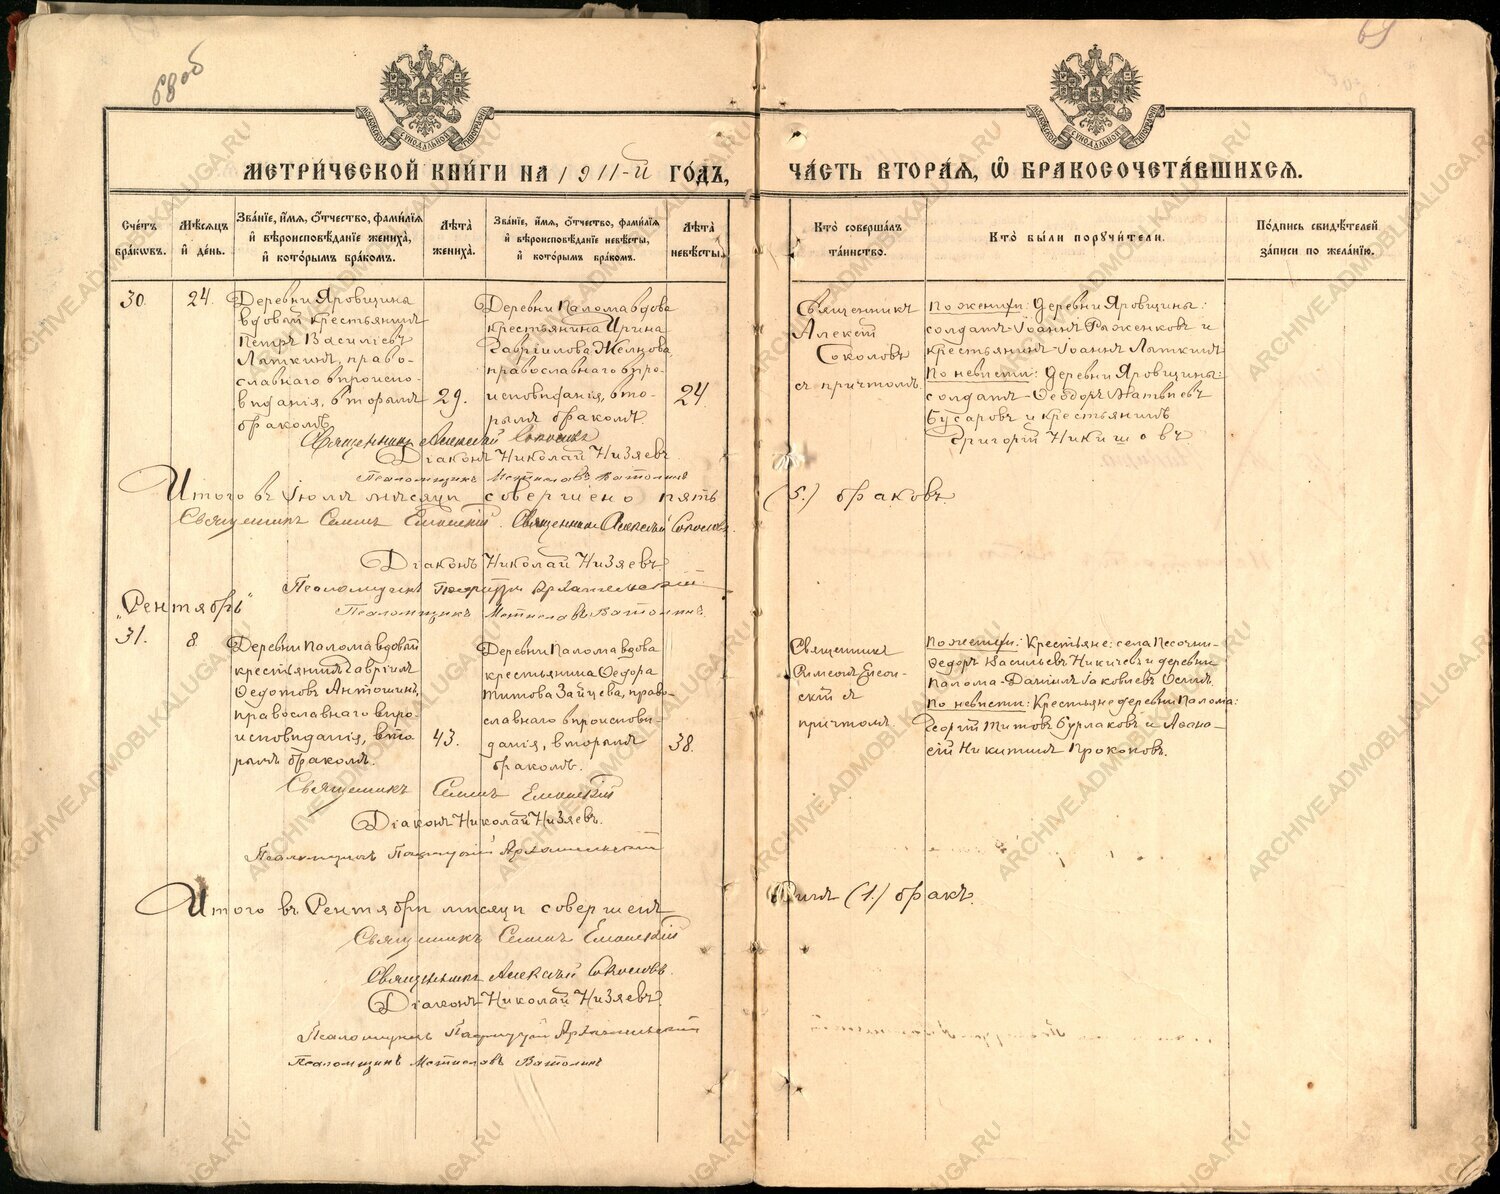 68 об
69
МЕТРИ́ЧЕСКОЙ КНИ́ГИ НА 1911-й ГО́ДЪ,
ЧА́СТЬ ВТОРА́Я, Ѡ҆ БРАКОСОЧЕТА́ВШИХСЯ.
Сче́тъ бра́кѡвъ.
Мѣ́сяцъ и҆ де́нь.
Зва́нїе, и҆́мя, ѻ҆́тчество, фамѝлїя и҆ вѣроисповѣ́данїе жениха̀, и҆ кото́рымъ бра́комъ.
Лѣ́та жениха̀.
Зва́нїе, и҆́мя, ѻ҆́тчество, фамѝлїя и҆ вѣроисповѣ́данїе невѣ́сты, и҆ кото́рымъ бра́комъ.
Лѣ́та невѣ́сты.
Кто̀ соверша́лъ та́инство.
Кто̀ бы́ли порꙋчи́тели.
По́дпись свидѣ́телей за́писи по жела́нїю.
30.
24.
Деревни Яровщина
вдовый крестьянинъ
Петръ Василіевъ
Лямкинъ, право-
славнаго вѣроиспо-
вѣданія, вторымъ
бракомъ
29.
Деревни Палома вдова
крестьянина Ирина
Гавріилова
православнаго вѣро-
исповѣданія, вто-
рымъ бракомъ.
24
Священникъ
Алексій
Соколовъ
съ причтомъ.
По женихѣ: Деревни Яровщины:
солдатъ Іоаннъ Раженковъ и
крестьянинъ Іоаннъ Лямкинъ
По невѣстѣ: Деревни Яровщины:
солдатъ Ѳеодоръ Матвіевъ
Бусаровъ и крестьянинъ
Григорій Никишовъ
Священникъ Алексій Соколовъ
Діаконъ Николай Низяевъ
Псаломщикъ Мстиславъ Ватолинъ
Итого въ Іюлѣ мѣсяцѣ совершено пять
(5.) браковъ.
Священникъ Симеонъ Священникъ Алексѣй Соколовъ
Діаконъ Николай Низяевъ
Псаломщикъ Архангельскій
Псаломщикъ Мстиславъ Ватолинъ
„Сентябрь“
31.
8
Деревни Палома вдовый
крестьянинъ Гавріилъ
Ѳедотовъ Антошинъ,
православнаго вѣро-
исповѣданія, вто-
рымъ бракомъ.
43.
Деревни Палома вдова
крестьянина Ѳедора
Титова Зайцева, право-
славнаго вѣроисповѣ-
данія, вторымъ
бракомъ.
38.
Священникъ
Симеонъ
скій съ
причтомъ.
По женихѣ: Крестьяне: села Песочни-
Ѳедоръ Васильевъ Никичевъ и деревни
Палома Даніилъ Іаковлевъ
По невѣстѣ: Крестьяне деревни Палома:
Георгій Титовъ Бурлаковъ и Аѳана-
сій Никитинъ Прокоповъ.
Священникъ Симеонъ
Діаконъ Николай Низяевъ.
Псаломщикъ Архангельскій
Итого въ Сентябрѣ мѣсяцѣ совершенъ
Одинъ (1.) бракъ.
Священникъ Симеонъ
Священникъ Алексѣй Соколовъ.
Діаконъ Николай Низяевъ.
Псаломщикъ Архангельскій
Псаломщикъ Мстиславъ Ватолинъ
ARCHIVE.ADMOBLKALUGA.RU